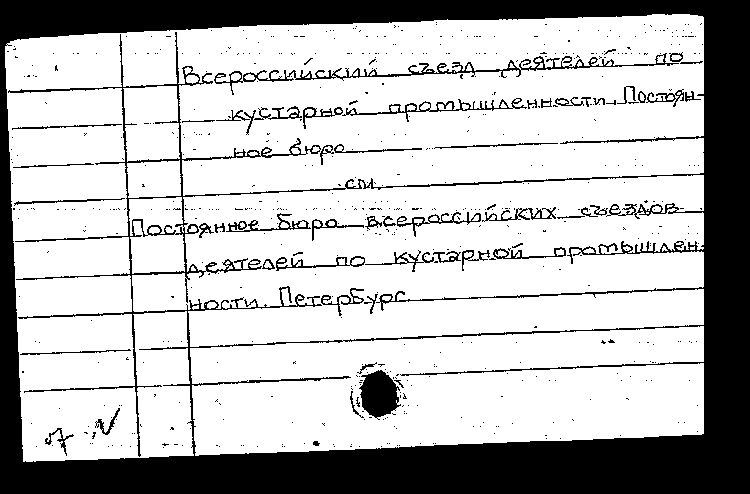 Всероссийский съезд деятелей по
кустарной промышленности. Постоян-
ное бюро
см.
Постоянное бюро всероссийских съездов
деятелей по кустарной промышлен-
ности. Петербург.